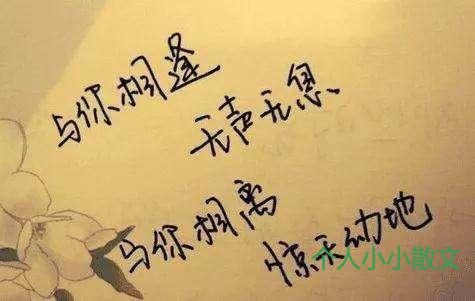 与你相逢
无声无息
与你相离
惊天动地
个人小小散文